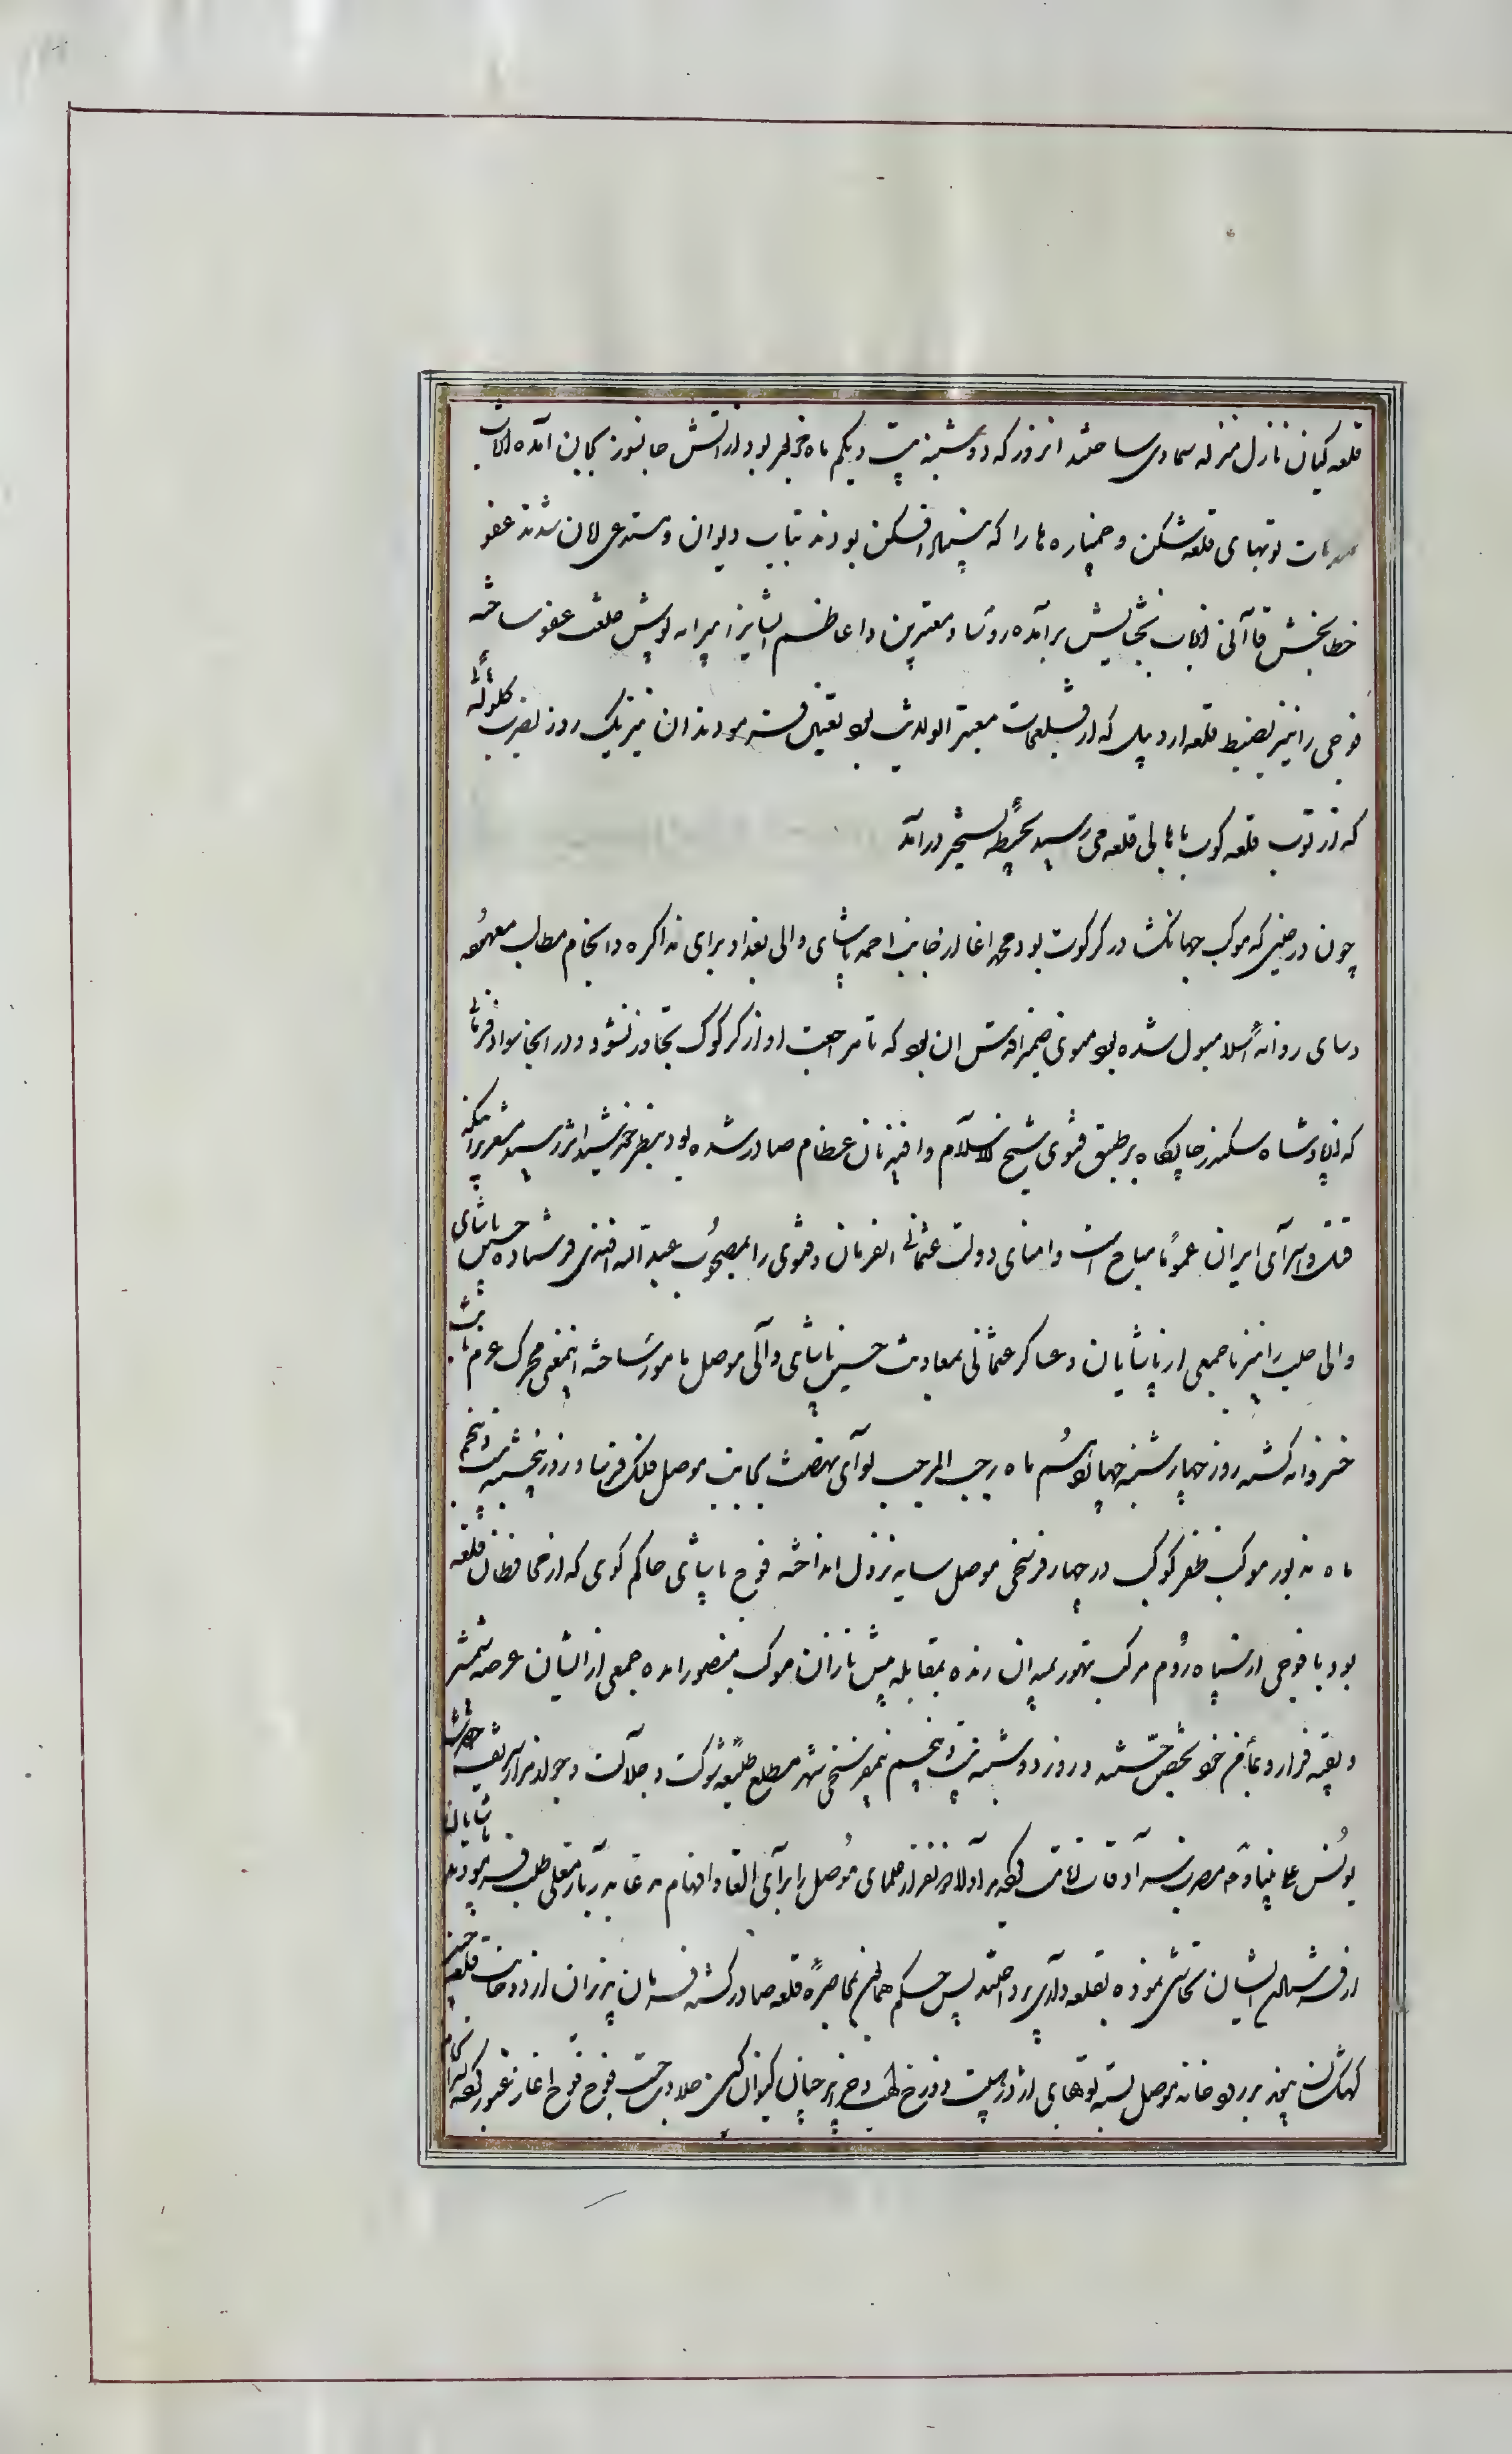 قلعه کیان نازل منزله سماوی ساختند انروز که دوشنبه بیست و یکم ماه مزبور بود از اتش جانسوز بجان آمده الات
صدمات توپهای قلعه شکن و خمپاره ها را که افکن بودند بیتاب و توان و مستدعی امان شدند عفو
خطابخش قاآنی از باب بخشایش برآمده رؤسا و معتبرین و اعاظم ایشانرا پیرایه پوش خلعت عفو ساخته
فوجی را نیز بضبط قلعه اردبیل که از قلعجات معتبر الولایت بود تعیین فرمودند ان نیز یک روز بضرب گلوله
که از توپ قلعه کوب باهالی قلعه می رسید بحیطه تسخیر درآمد
چون در حینی که موکب جهانگشا در کرکوت بود محمد اغا از جانب احمد پاشای والی بغداد برای مذاکره و انجام مطالب معهوده
روانه اسلامبول شده بود ضمیر اقدس ان بود که تا مراجعت او از کرکوک تجاوز نشود و در انجا سواد فرمانی
که از پادشاه سکندر جایگاه بر طبق فتوی شیخ الاسلام و افندیان عظام صادر شده بود بنظر خورشید اثر رسید مشعر براینکه
قتل و اسرای ایران عموما مباح است و امنای دولت عثمانی الفرمان و فتوی را بمصحوب عبدالله افندی فرستاده حسین پاشای
والی حلب را نیز با جمعی از پاشایان و عساکر عثمانی بمعاونت حسین پاشای والی موصل مامور ساخته اینمعنی محرک عزم ثابت
خسروانه گشته روز چهارشنبه چهاردهم ماه رجب المرجب لوآی نهضت بجانب موصل فلک فرسا و روز پنجشنبه بیست و پنجم
ماه مذبور موکب ظفر کوکب در چهار فرسخی موصل سایه نزول انداخته قوج پاشای حاکم کوی که از محافظان قلعه
بود با فوجی از سپاه روم مرکب تهور بمیدان رانده بمقابله پیش تازان موکب منصور امده جمعی از ایشان عرضه شمشیر
و بقیه فرار و بمأمن خود تحصن جستند و روز دوشنبه بیست و پنجم نیمفرسخی شهر مطلع طلیعه شوکت و جلالت و حوالی مزار شریف حضرت
یونس علی نبینا و علیه مضرب سرادقات اقامت گشته اولا دو نفر از علمای موصل را برای القا و افهام مدعا بدربار معلی طلب فرمودند پاشایان
از فرستادن ایشان تحاشی نموده بقلعه داری پرداختند پس حکم همایون بمحاصره قلعه صادر گشته فرمان پذیران از دو جانب قلعه
کهکشان پیوند بر رودخانه موصل بسته توپهای اژدر هیبت دوزخ لهب و خمپاره جیان کیوان جلادت فوج فوج اغاز عبور کرده